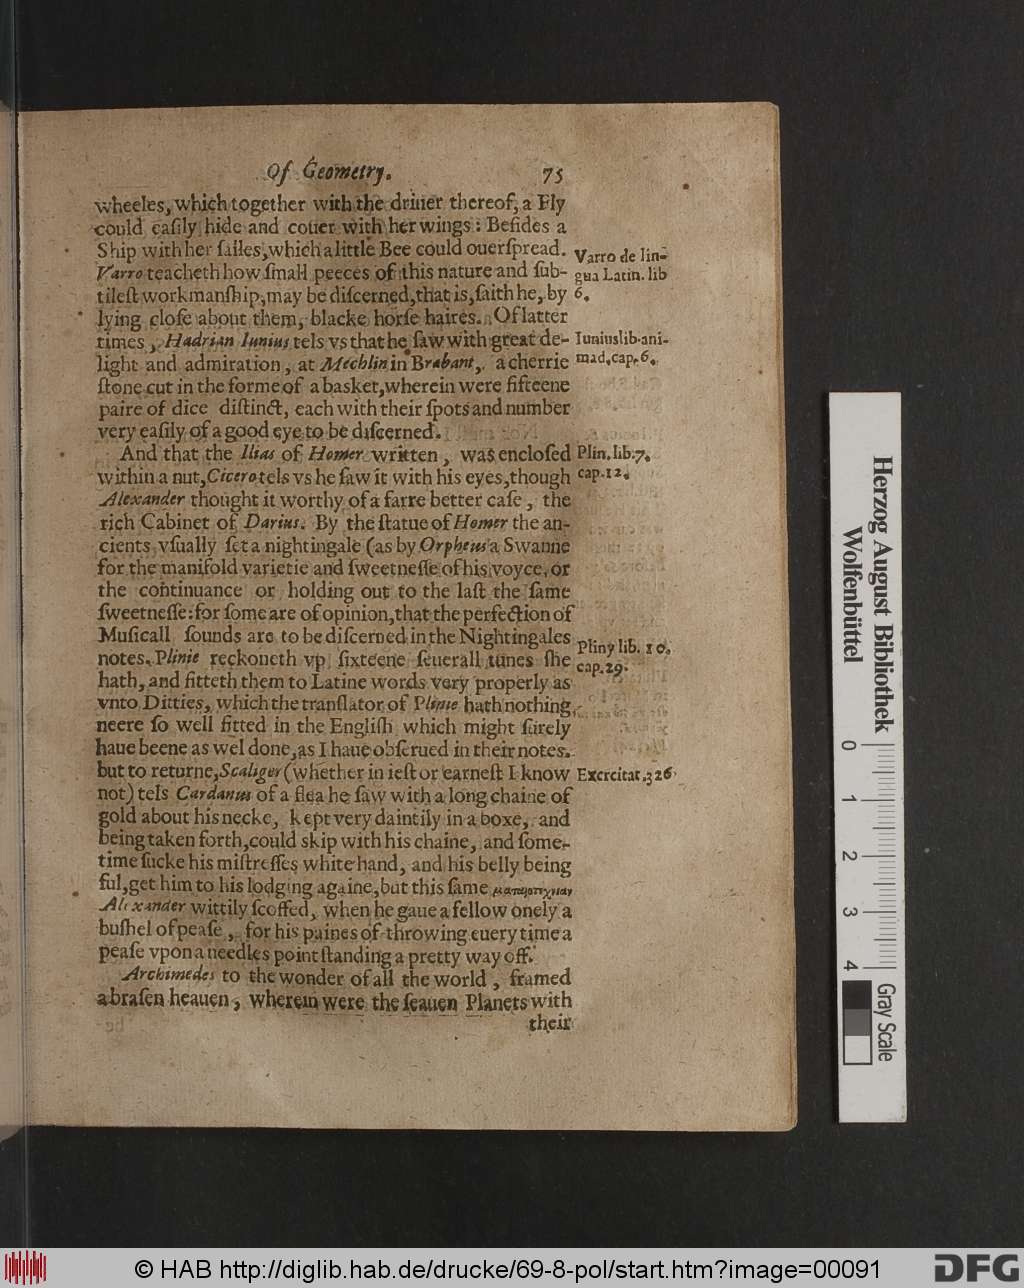 Of Geometry. 75
wheeles, which together with the driuer thereof, a Fly
could eaſily hide and couer with her wings: Beſides a
Ship with her ſailes, which a little Bee could ouerſpread.
Varro teacheth how ſmall peeces of this nature and ſub-
tileſt workmanſhip, may be diſcerned, that is, ſaith he, by
lying cloſe about them, blacke horſe haires. Of latter
times, Hadrian Iunius tels vs that he ſaw with great de-
light and admiration, at Mechlin in Brabant, a cherrie
ſtone cut in the forme of a basket, wherein were fifteene
paire of dice diſtinct, each with their ſpots and number
very eaſily of a good eye to be diſcerned.
And that the Ilias of Homer written, was encloſed
within a nut, Cicero tels vs he ſaw it with his eyes, though
Alexander thought it worthy of a farre better caſe, the
rich Cabinet of Darius. By the ſtatue of Homer the an-
cients vſually ſet a nightingale (as by Orpheus a Swanne
for the manifold varietie and ſweetneſſe of his voyce, or
the continuance or holding out to the laſt the ſame
ſweetneſſe: for ſome are of opinion, that the perfection of
Muſicall ſounds are to be diſcerned in the Nightingales
notes. Plinie reckoneth vp ſixteene ſeuerall tunes ſhe
hath, and fitteth them to Latine words very properly as
vnto Ditties, which the tranſlator of Plinie hath nothing
neere ſo well fitted in the Engliſh which might ſurely
haue beene as wel done, as I haue obſerued in their notes.
but to returne, Scaliger (whether in ieſt or earneſt I know
not) tels Cardanus of a flea he ſaw with a long chaine of
gold about his necke, kept very daintily in a boxe, and
being taken forth, could skip with his chaine, and ſome-
time ſucke his miſtreſſes white hand, and his belly being
ful, get him to his lodging againe, but this ſame
Alexander wittily ſcoffed, when he gaue a fellow onely a
buſhel of peaſe, for his paines of throwing euery time a
peaſe vpon a needles point ſtanding a pretty way off.
Archimedes to the wonder of all the world, framed
a braſen heauen, wherein were the ſeauen Planets with
their
Varro de lin-
gua Latin. lib
6.
Iunius lib. ani-
mad. cap. 6.
Plin. lib. 7.
cap. 12.
Pliny lib. 10.
cap. 29.
Exercitat. 326.
Herzog August Bibliothek
Wolfenbüttel
0 1 2 3 4
Gray Scale
© HAB http://diglib.hab.de/drucke/69-8-pol/start.htm?image=00091
DFG